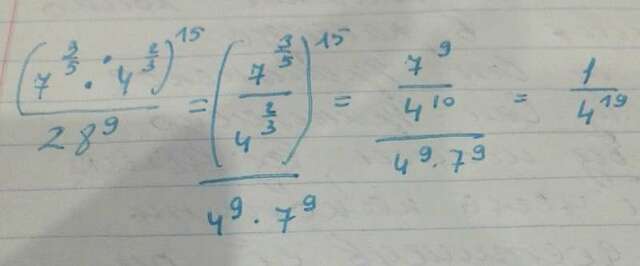 (7^(3/5) : 4^(2/3))^15 / 28^9 = (7^(3/5) / 4^(2/3))^15 / (4^9 · 7^9) = (7^9 / 4^10) / (4^9 · 7^9) = 1 / 4^19